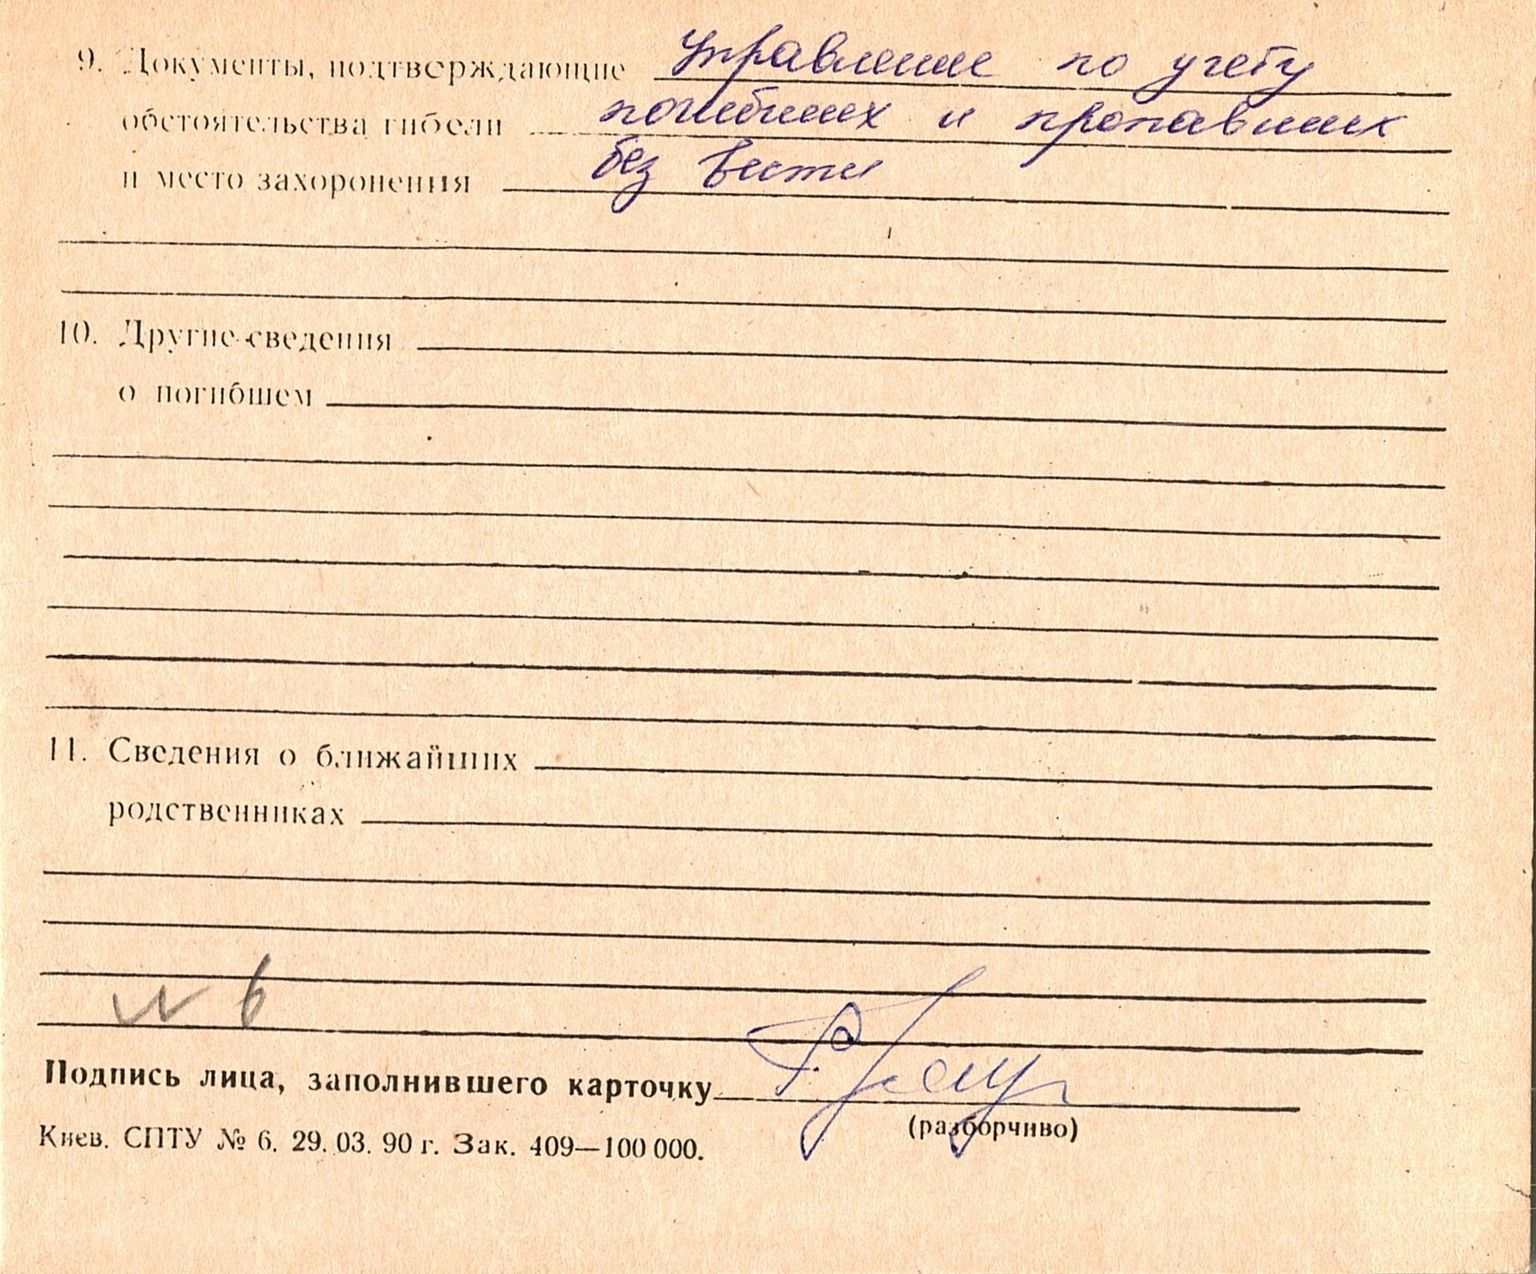 9. Документы, подтверждающие Управление по учету
обстоятельства гибели погибших и пропавших
и место захоронения без вести
10. Другие сведения
о погибшем
11. Сведения о ближайших
родственниках
№ 6
Подпись лица, заполнившего карточку
(разборчиво)
Киев. СПТУ № 6. 29. 03. 90 г. Зак. 409—100 000.